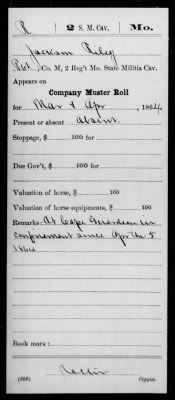 R | 2 S. M. Cav. | Mo.
Jackson Riley
Pvt., Co. M, 2 Reg't Mo. State Militia Cav.
Appears on
Company Muster Roll
for Mar & Apr, 1864.
Present or absent Absent.
Stoppage, $ 100 for
Due Gov't, $ 100 for
Valuation of horse, $ 100
Valuation of horse equipments, $ 100
Remarks: At Cape Girardeau in
confinement since Apr the 5
1864
Book mark:
(358) Copyist.